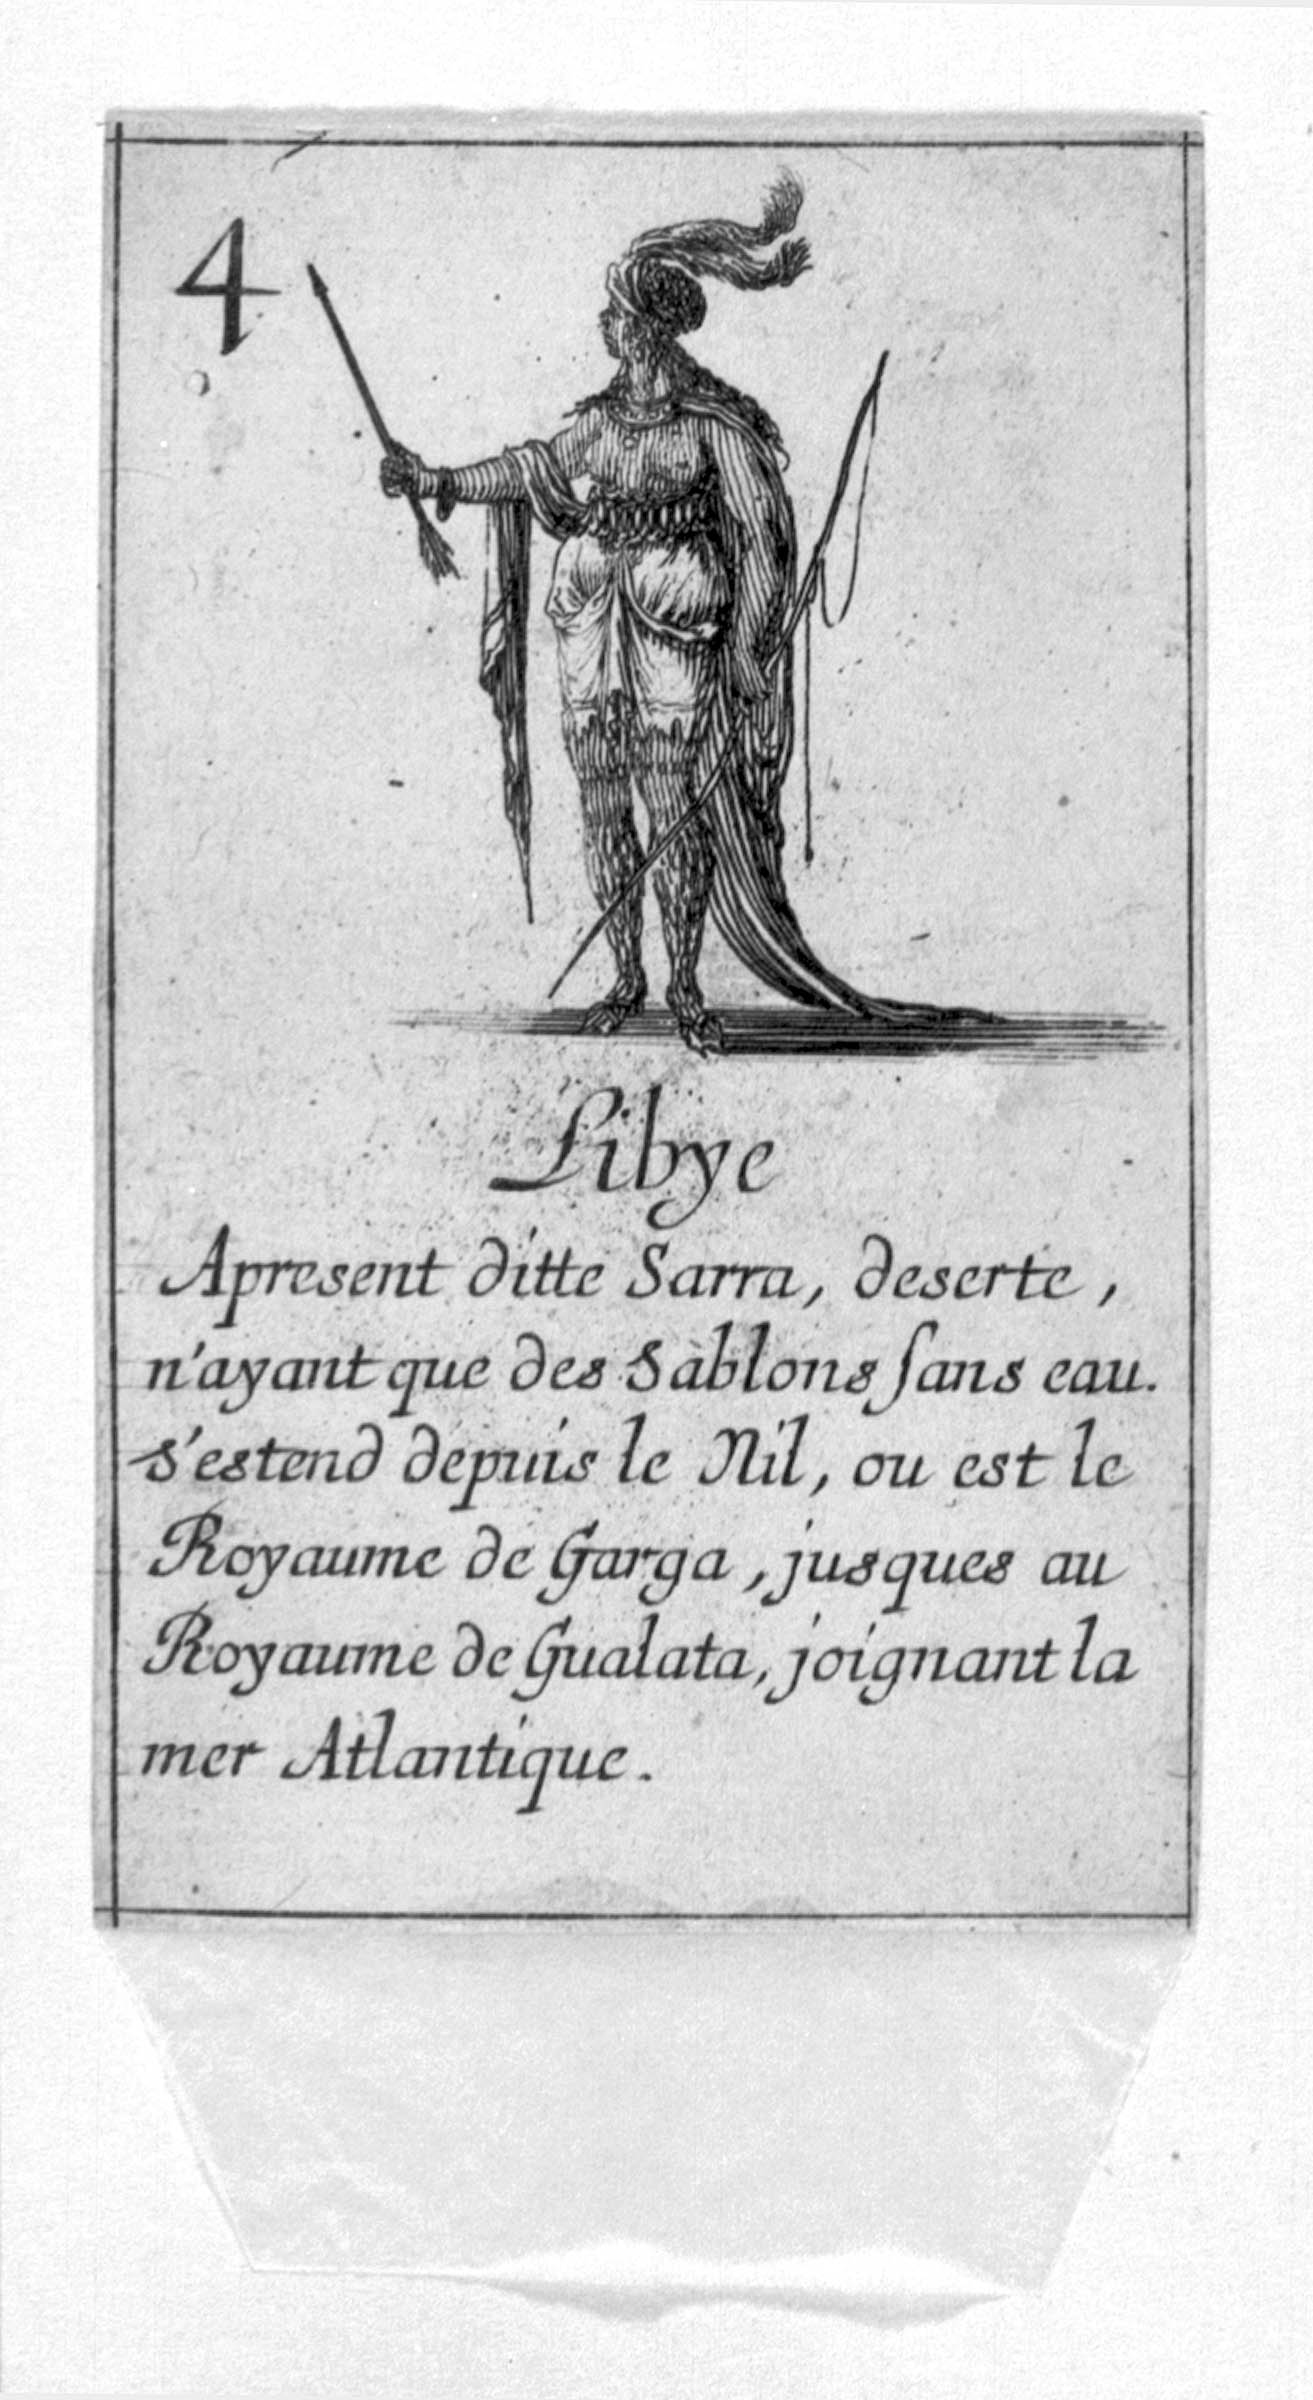 4
Libye
Apresent ditte Sarra, deserte,
n'ayant que des Sablons ſans eau.
s'estend depuis le Nil, ou est le
Royaume de Garga, jusques au
Royaume de Gualata, joignant la
mer Atlantique.